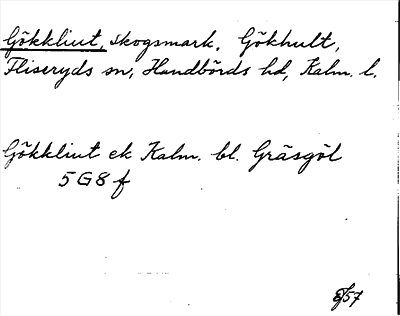 Gökkliut, skogsmark, Gökhult,
Fliseryds sn, Handbörds hd, Kalm. l.
Gökkliut ek Kalm. bl. Gräsgöl
5G8f
57